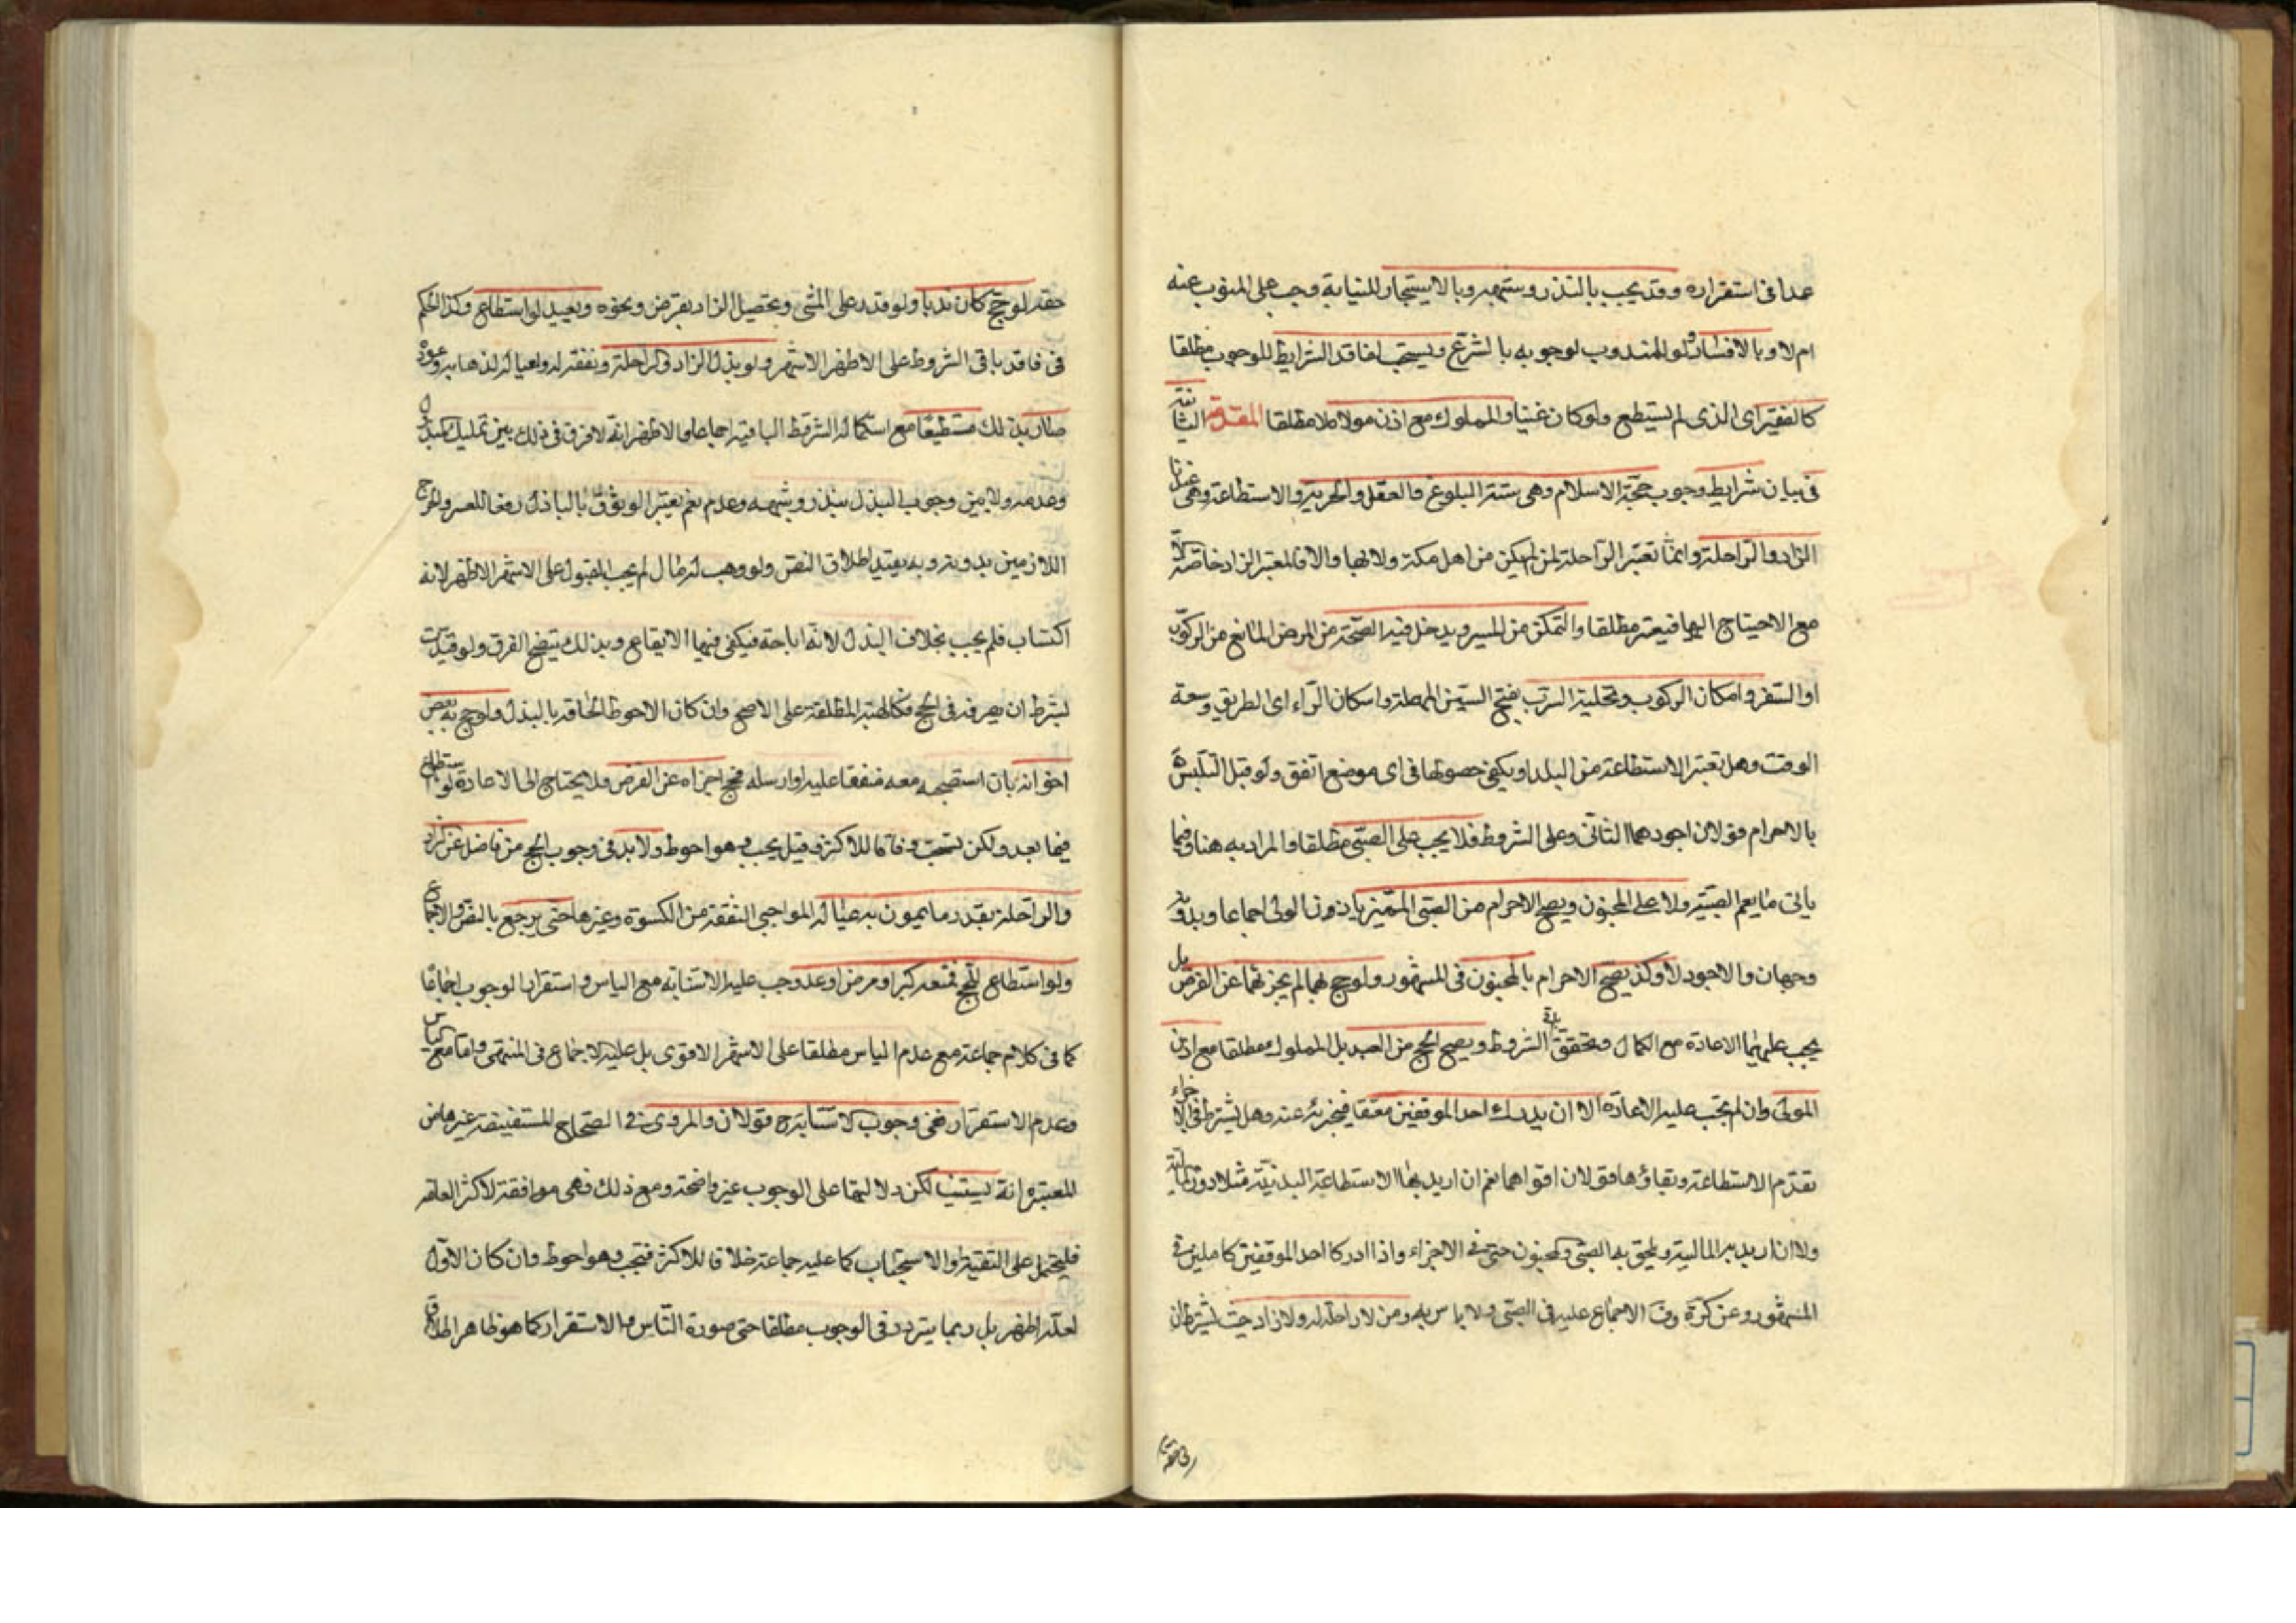 عدا في استقراره وقد يجب بالنذر وشبهه وبالاستيجار للنيابة وجب على المنوب عنه
ام لا وبالافساد ولو للمندوب لوجوبه بالشرع ويستحب لفاقد الشرايط للوجوب مطلقا
كالفقير اى الذى لم يستطع ولو كان غنيا والمملوك مع اذن مولاه لا مطلقا المقدمة الثانية
في بيان شرايط وجوب حجة الاسلام وهى ستة البلوغ والعقل والحرية والاستطاعة وهى عندنا
الزاد والراحلة وانما تعتبر الراحلة لمن لم يكن من اهل مكة ولا بها والا فالمعتبر الزاد خاصة الا
مع الاحتياج اليها فيعتبر مطلقا والتمكن من المسير ويدخل فيه الصحة من المرض المانع من الركوب
او السفر وامكان الركوب وتخلية السرب بفتح السين المهملة واسكان الراء اى الطريق وسعة
الوقت وهل تعتبر الاستطاعة من البلد او يكفى حصولها في اى موضع اتفق ولو قبل التلبس
بالاحرام قولان اجودهما الثانى وعلى الشروط فلا يجب على الصبى مطلقا والمراد به هنا وفيما
يأتى ما يعم الصبية ولا على المجنون ويصح الاحرام من الصبى المميز باذن الولى اجماعا وبدونه
وجهان والاجود لا وكذ يصح الاحرام بالمجنون في المشهور ولو حج بهما لم يجزئهما عن الفرض بل
يجب عليهما الاعادة مع الكمال وتحقق باقى الشروط ويصح الحج من العبد بل المملوك مطلقا مع اذن
المولى وان لم يجب عليه الاعادة الا ان يدرك احد الموقفين معتقا فيجزئه عنه وهل يشترط في الاجزاء
تقدم الاستطاعة وبقاؤها قولان اقواهما نعم ان اريد بها الاستطاعة البدنية مثلا دون المالية
ولا ان اريد به المالية ويلحق به الصبى والمجنون حتى في الاجزاء واذا ادركا احد الموقفين كاملين في
المشهور وعن كرة وف الاجماع عليه في الصبى ولا باس به ومن لا راحلة له ولا زاد حيث يشترطان
في حقه
حقه لو حج كان ندبا ولو قدر على المشى وتحصيل الزاد بقرض ونحوه ويعيد لو استطاع وكذا الحكم
في فاقد باقى الشروط على الاظهر الاشهر ولو بذل الزاد والراحلة ونفقة له ولعياله لذهابه وعوده
صار بذلك مستطيعا مع استكماله الشروط الباقية اجماعا والاظهر انه لا فرق في ذلك بين تمليك المبذول
وعدمه ولا بين وجوب البذل بنذر وشبهه وعدمه نعم يعتبر الوثوق بالباذل دفعا للعسر والحرج
اللازمين بدونه وبه يقيد اطلاق النص ولو وهب له مال لم يجب القبول على الاشهر الاظهر لانه
اكتساب فلم يجب بخلاف البذل لانه اباحة فيكفى فيها الايقاع وبذلك يتضح الفرق ولو قيدت
بشرط ان يصرفه في الحج فكالهبة المطلقة على الاصح وان كان الاحوط الحاقه بالبذل ولو حج به بعض
اخوانه بان استصحبه معه منفقا عليه او ارسله فحج اجزاه عن الفرض ولا يحتاج الى الاعادة لو استطاع
فيما بعد ولكن تستحب وفاقا للاكثر وقيل يجب وهو احوط ولا بد في وجوب الحج من فاضل عن الزاد
والراحلة بقدر ما يمون به عياله الواجبى النفقة من الكسوة وغيرها حتى يرجع بالنص والاجماع
ولو استطاع للحج فمنعه كبر او مرض او عدو وجب عليه الاستنابة مع الياس واستقرار الوجوب اجماعا
كما في كلام جماعة ومع عدم الياس مطلقا على الاشهر الاقوى بل عليه الاجماع في المنتهى واما مع الياس
وعدم الاستقرار ففى وجوب الاستنابة ح قولان والمروى في الصحاح المستفيضة وغيرها من
المعتبرة انه يستنيب لكن دلالتها على الوجوب غير واضحة ومع ذلك فهى موافقة لاكثر العامة
فليحتمل على التقية والاستحباب كما عليه جماعة خلافا للاكثر فتجب وهو احوط وان كان الاول
لعله اظهر بل ربما يتردد في الوجوب مطلقا حتى صورة الياس والاستقرار كما هو ظاهر اطلاق